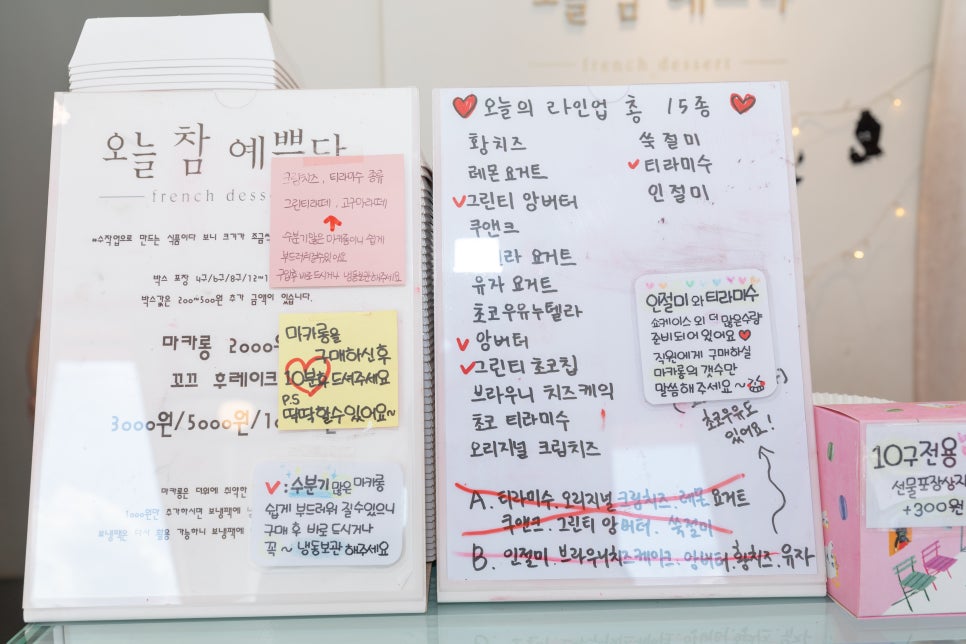 오늘 참 예쁘다
french dessert
오늘 참 예쁘다
french desse
크림치즈, 티라미수 종류
그린티라떼, 고구마라떼
수분기많은 마카롱이니 쉽게
구입후 바로드시거나 냉동보관해주세요
*수작업으로 만드는 식품이다 보니 크기가 조금씩
박스 포장 4구/6구/8구/12~1
박스값은 200~500원 추가 금액이 있습니다.
마카롱 2000원
꼬끄 후레이크
3000원/5000원/10
마카롱을
구매하신후
10분후 드셔주세요
P.S
딱딱할수있어요~
마카롱은 더위에 취약한
1000원만 추가하시면 보냉팩에
보냉백은 다시 활용 가능하니 보냉팩에
✓: 수분기 많은 마카롱
쉽게 부드러워 질수있으니
구매 후 바로 드시거나
꼭~ 냉동보관 해주세요
♥오늘의 라인업 총 15종♥
황치즈
레몬 요거트
✓그린티 앙버터
쿠앤크
라 요거트
유자 요거트
초코우유누텔라
✓앙버터
✓그린티 초코칩
브라우니 치즈케익
초코 티라미수
오리지널 크림치즈
쑥 절미
✓티라미수
인절미
인절미와 티라미수
쇼케이스 외 더 많은수량
준비되어 있어요♥
직원에게 구매하실
마카롱의 갯수만
말씀해주세요~
초코우유도
있어요!
A. 티라미수. 오리지널 크림치즈. 레몬 요거트
쿠앤크. 그린티 앙버터. 쑥절미
B. 인절미. 브라우니치즈케이크. 앙버터. 황치즈. 유자
10구전용
선물포장상자
+300원